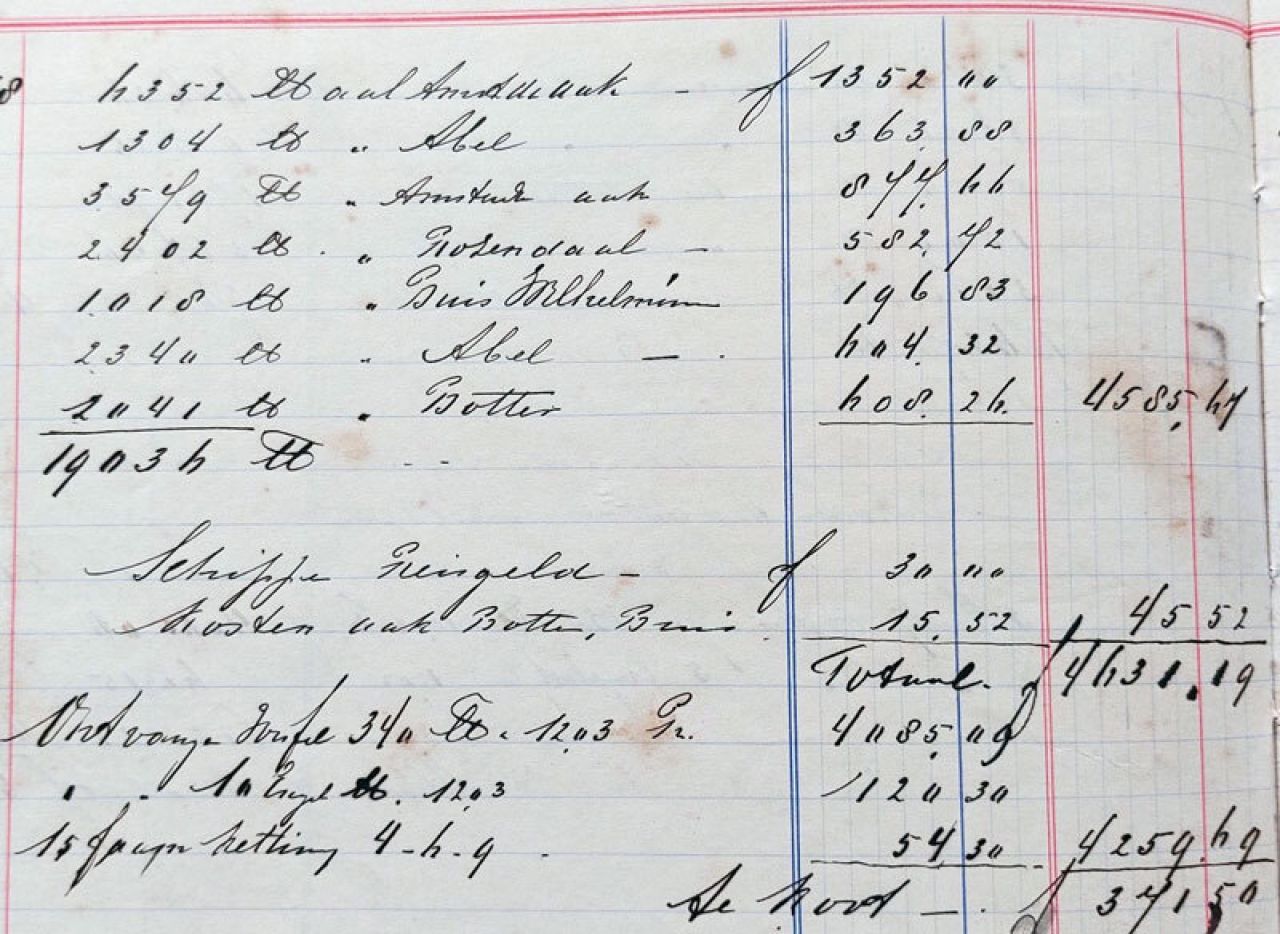 6352 ℔ aal Amst. aak - f 1352 00
1304 ℔ " Abel 363.88
3579 ℔ " Amst. aak 877.66
2402 ℔ " Rosendaal - 582.72
1018 ℔ " Buis Wilhelmina 196 83
2340 ℔ " Abel - 604.32
2041 ℔ " Botter 608.26. 4585,67
19036 ℔
Schipper Reisgeld - f 30 00
Kosten aak Botter, Buis 15.52 45 52
Totaal. f 4631.19
Ontvange 340 ℔ 12.03 4085.09
" " 10 Engel ℔. 12.03 120 30
15 faam ketting 4-6-9 54 30 4259.69
Te Kort - f 371 50